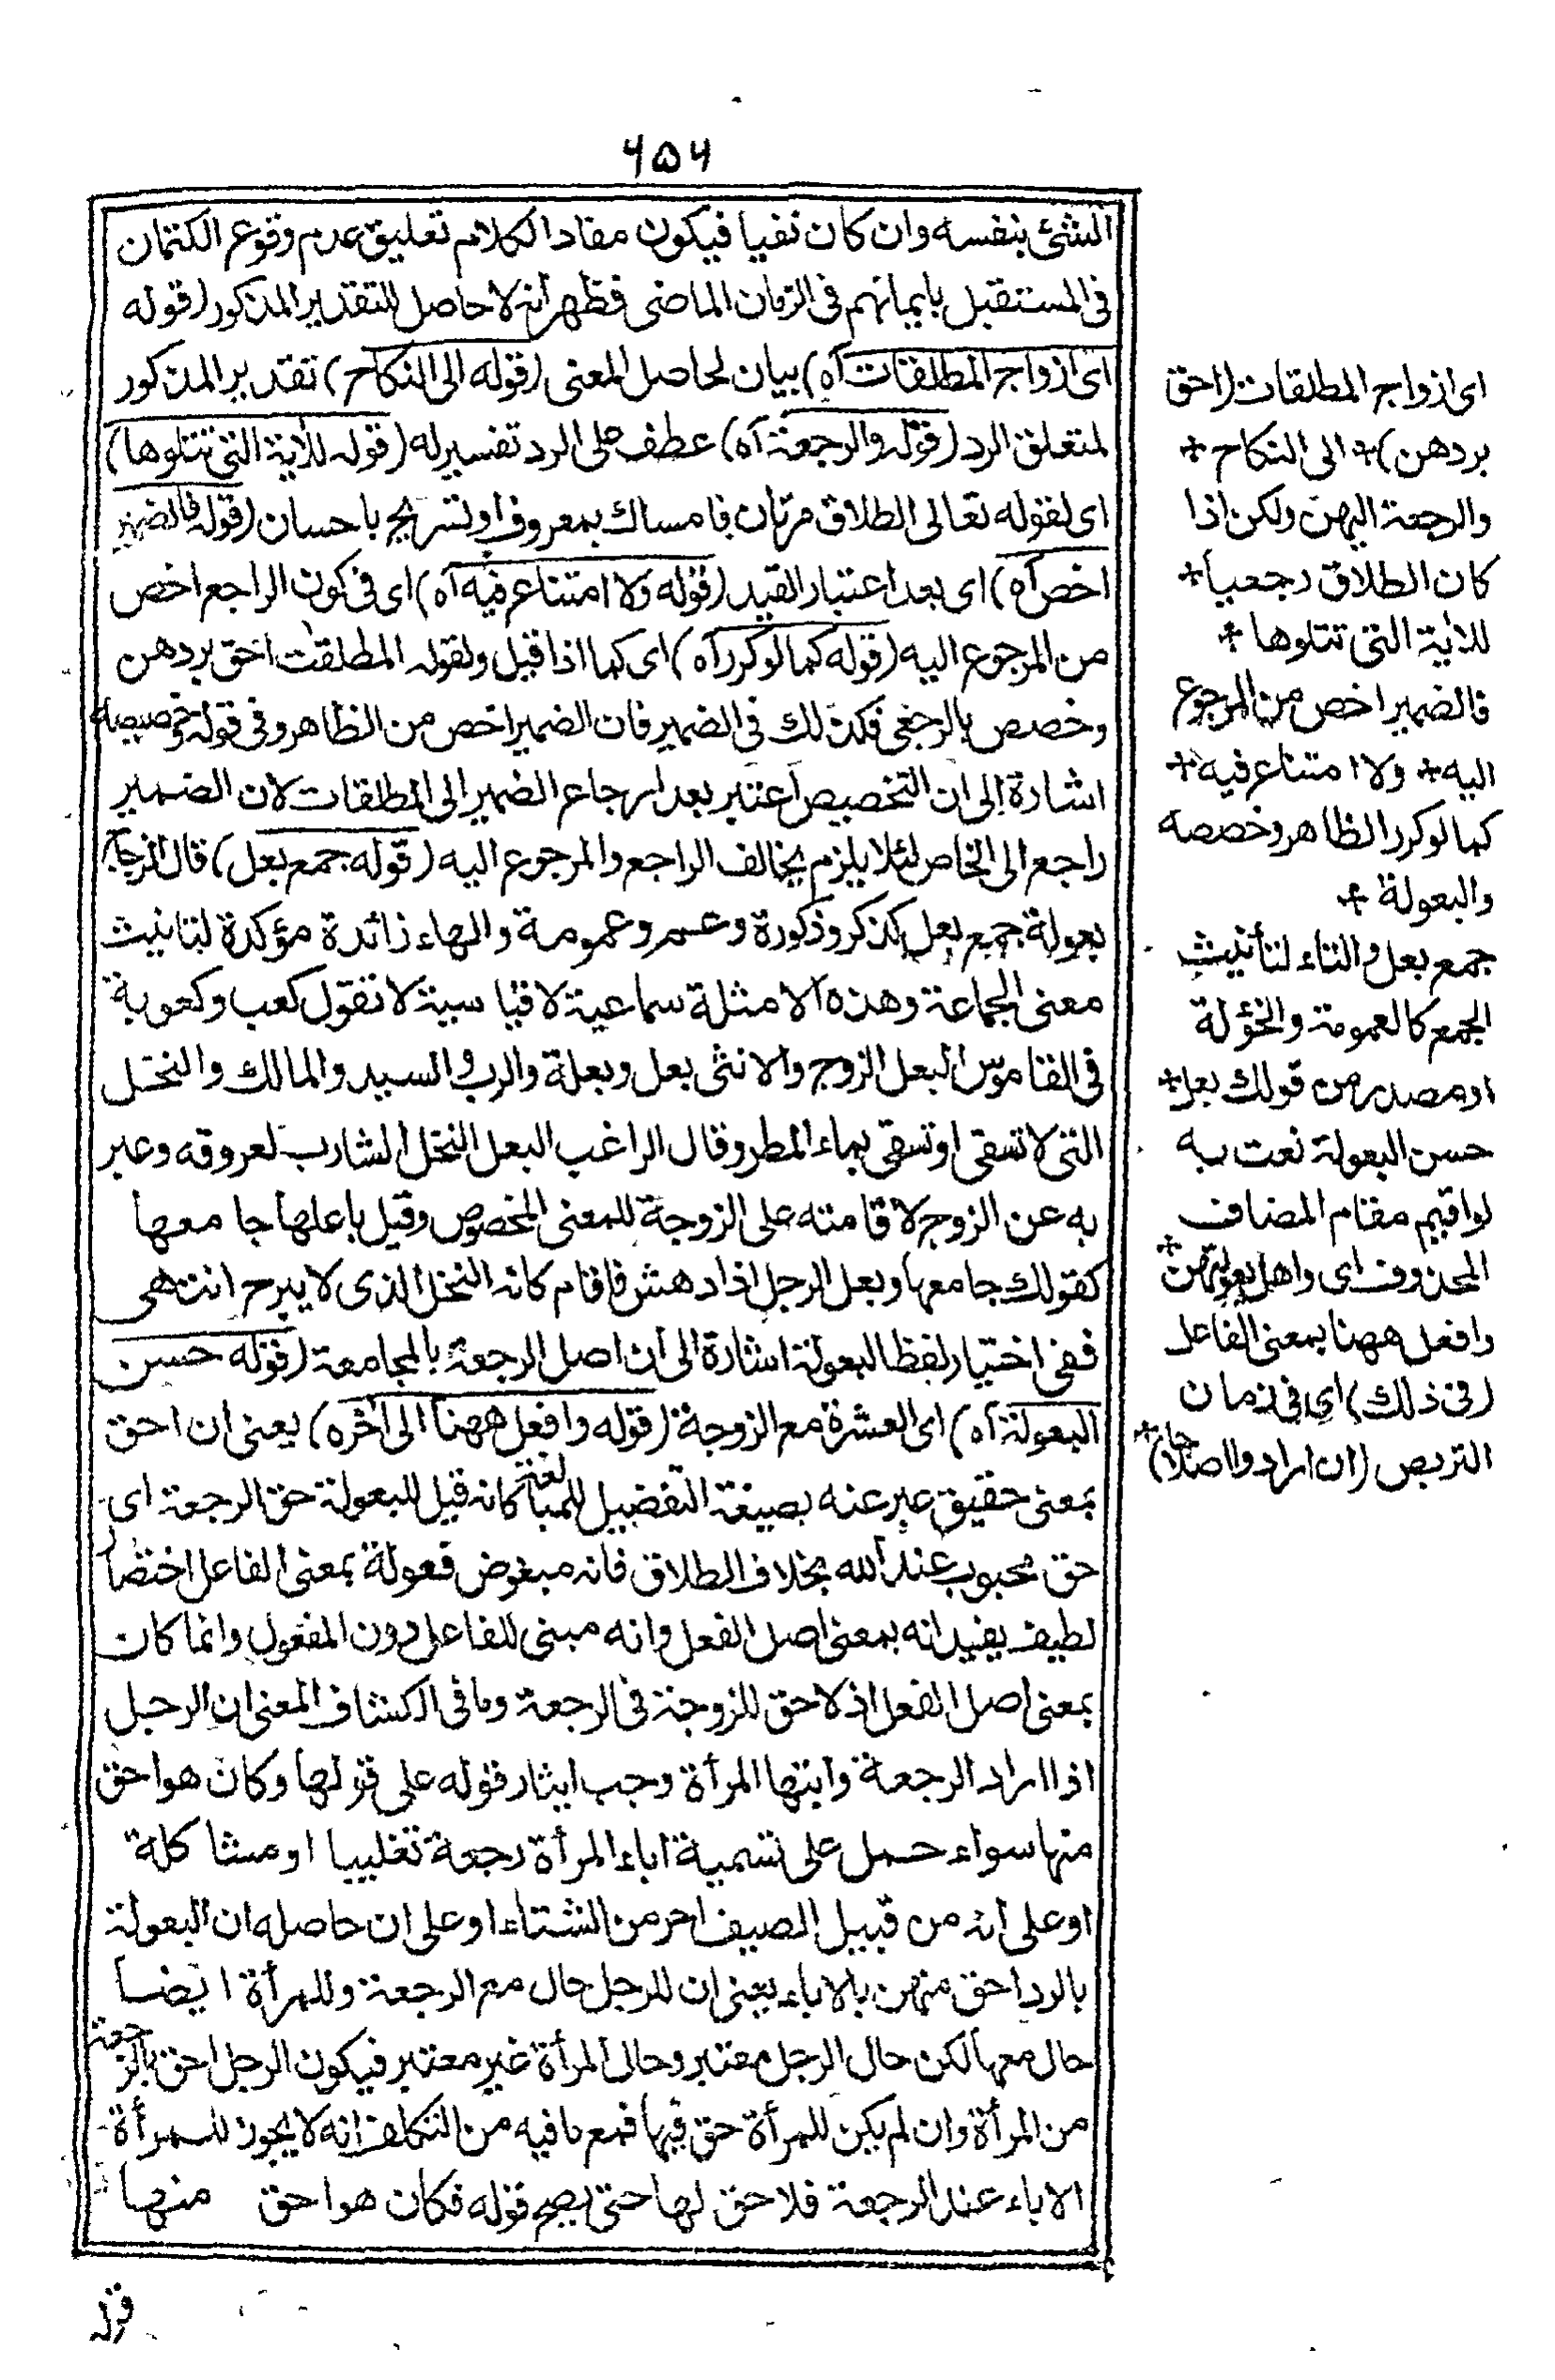 ۶۵۶
الشئ بنفسه وان كان نفيا فيكون مفاد الكلام تعليق عدم وقوع الكتمان
فى المستقبل بايمانهم فى الزمان الماضى فظهر انه لا حاصل للتقدير المذكور (قوله
اى ازواج المطلقات آه) بيان لحاصل المعنى (قوله الى النكاح) تقدير المذكور
لمتعلق الرد (قوله والرجعة آه) عطف على الرد تفسير له (قوله للآية التى تتلوها)
اى لقوله تعالى الطلاق مرتان فامساك بمعروف او تسريح باحسان (قوله فالضمير
اخص آه) اى بعد اعتبار القيد (قوله ولا امتناع فيه آه) اى فى كون الراجع اخص
من المرجوع اليه (قوله كما لو كرر آه) اى كما اذا قيل ولقوله المطلقت احق بردهن
وخصص بالرجعى فكذلك فى الضمير فان الضمير اخص من الظاهر وفى قوله وخصيصه
اشارة الى ان التخصيص اعتبر بعد ارجاع الضمير الى المطلقات لان الضمير
راجع الى الخاص لئلا يلزم يخالف الراجع والمرجوع اليه (قوله جمع بعل) قال الزجاج
بعولة جمع بعل كذكر وذكورة وعم وعمومة والهاء زائدة مؤكدة لتانيث
معنى الجماعة وهذه الامثلة سماعية لا قياسية لا تقول كعب وكعوبة
فى القاموس البعل الزوج والانثى بعل وبعلة والرب والسيد والمالك والنخل
التى لا تسقى او تسقى بماء المطر وقال الراغب البعل النخل الشارب لعروقه وعبر
به عن الزوج لاقامته على الزوجة للمعنى المخصوص وقيل باعلها جامعها
كقولك جامعها وبعل الرجل اذا دهش فاقام كانه النخل الذى لا يبرح انتهى
ففى اختيار لفظ البعولة اشارة الى ان اصل الرجعة بالمجامعة (قوله حسن
البعولة آه) اى العشرة مع الزوجة (قوله وافعل ههنا الى آخره) يعنى ان احق
بمعنى حقيق عبر عنه بصيغة التفضيل للمبالغة كانه قيل للبعولة حق الرجعة اى
حق محبوب عند الله بخلاف الطلاق فانه مبغوض فعولة بمعنى الفاعل اختصار
لطيف يفيد انه بمعنى اصل الفعل وانه مبنى للفاعل دون المفعول وانما كان
بمعنى اصل الفعل اذ لا حق للزوجة فى الرجعة وما فى الكشاف المعنى ان الرجل
اذا اراد الرجعة وابتها المرأة وجب ايثار قوله على قولها وكان هو احق
منها سواء حمل على تسمية اباء المرأة رجعة تغليبا او مشاكلة
او على انه من قبيل الصيف احر من الشتاء او على ان حاصله ان البعولة
بالرد احق منهن بالاباء يعنى ان للرجل حال مع الرجعة وللمرأة ايضا
حال معها لكن حال الرجل معتبر وحال المرأة غير معتبر فيكون الرجل احق بالرجعة
من المرأة وان لم يكن للمرأة حق فيها فمع ما فيه من التكلف انه لا يجوز للمرأة
الاباء عند الرجعة فلا حق لها حتى يصح قوله فكان هو احق منها
اى ازواج المطلقات (احق
بردهن)* الى النكاح *
والرجعة اليهن ولكن اذا
كان الطلاق رجعيا *
للآية التى تتلوها *
فالضمير اخص من المرجوع
اليه * ولا امتناع فيه *
كما لو كرر الظاهر وخصصه
والبعولة *
جمع بعل والتاء لتأنيث
الجمع كالعمومة والخؤلة
او مصدر من قولك بعل *
حسن البعولة نعت به
لو اقيم مقام المضاف
المحذوف اى واهل بعولتهن *
وافعل ههنا بمعنى الفاعل
(فى ذلك) اى فى زمان
التربص (ان ارادوا اصلاحا) *